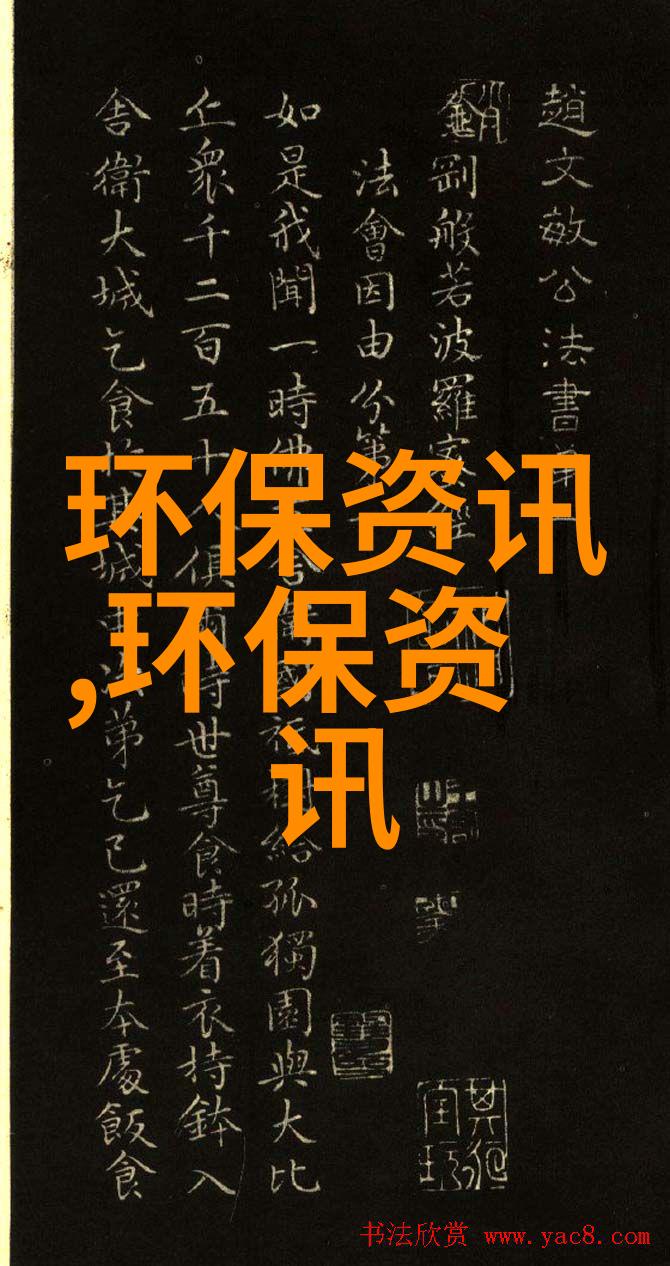 趙文敏公法書
金剛般若波羅蜜經
法會因由分第
如是我聞一時佛在舍衛國祇樹給孤獨園與大比
丘衆千二百五十人俱爾時世尊食時着衣持鉢入
舍衛大城乞食於其城中次弟乞已還至本處飯食
环保资讯
,环保资
讯
书法欣赏 www.yac8.com